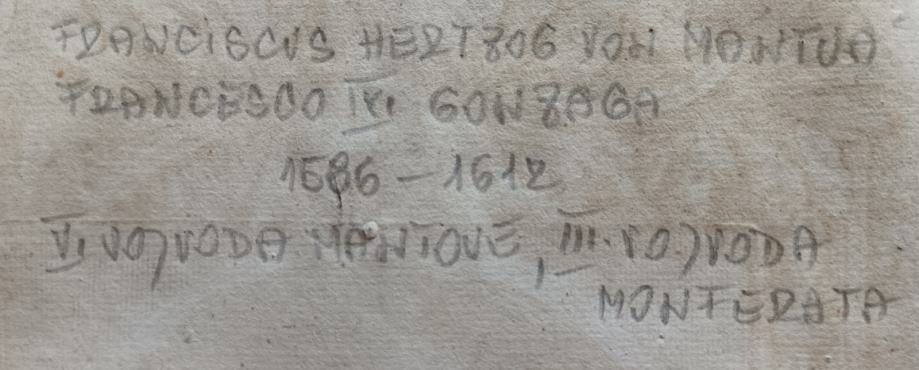 FRANCISCUS HERTZOG VON MANTUA
FRANCESCO IV. GONZAGA
1586 – 1612
V. VOJVODA MANTOVE, III. VOJVODA
MONFERATA